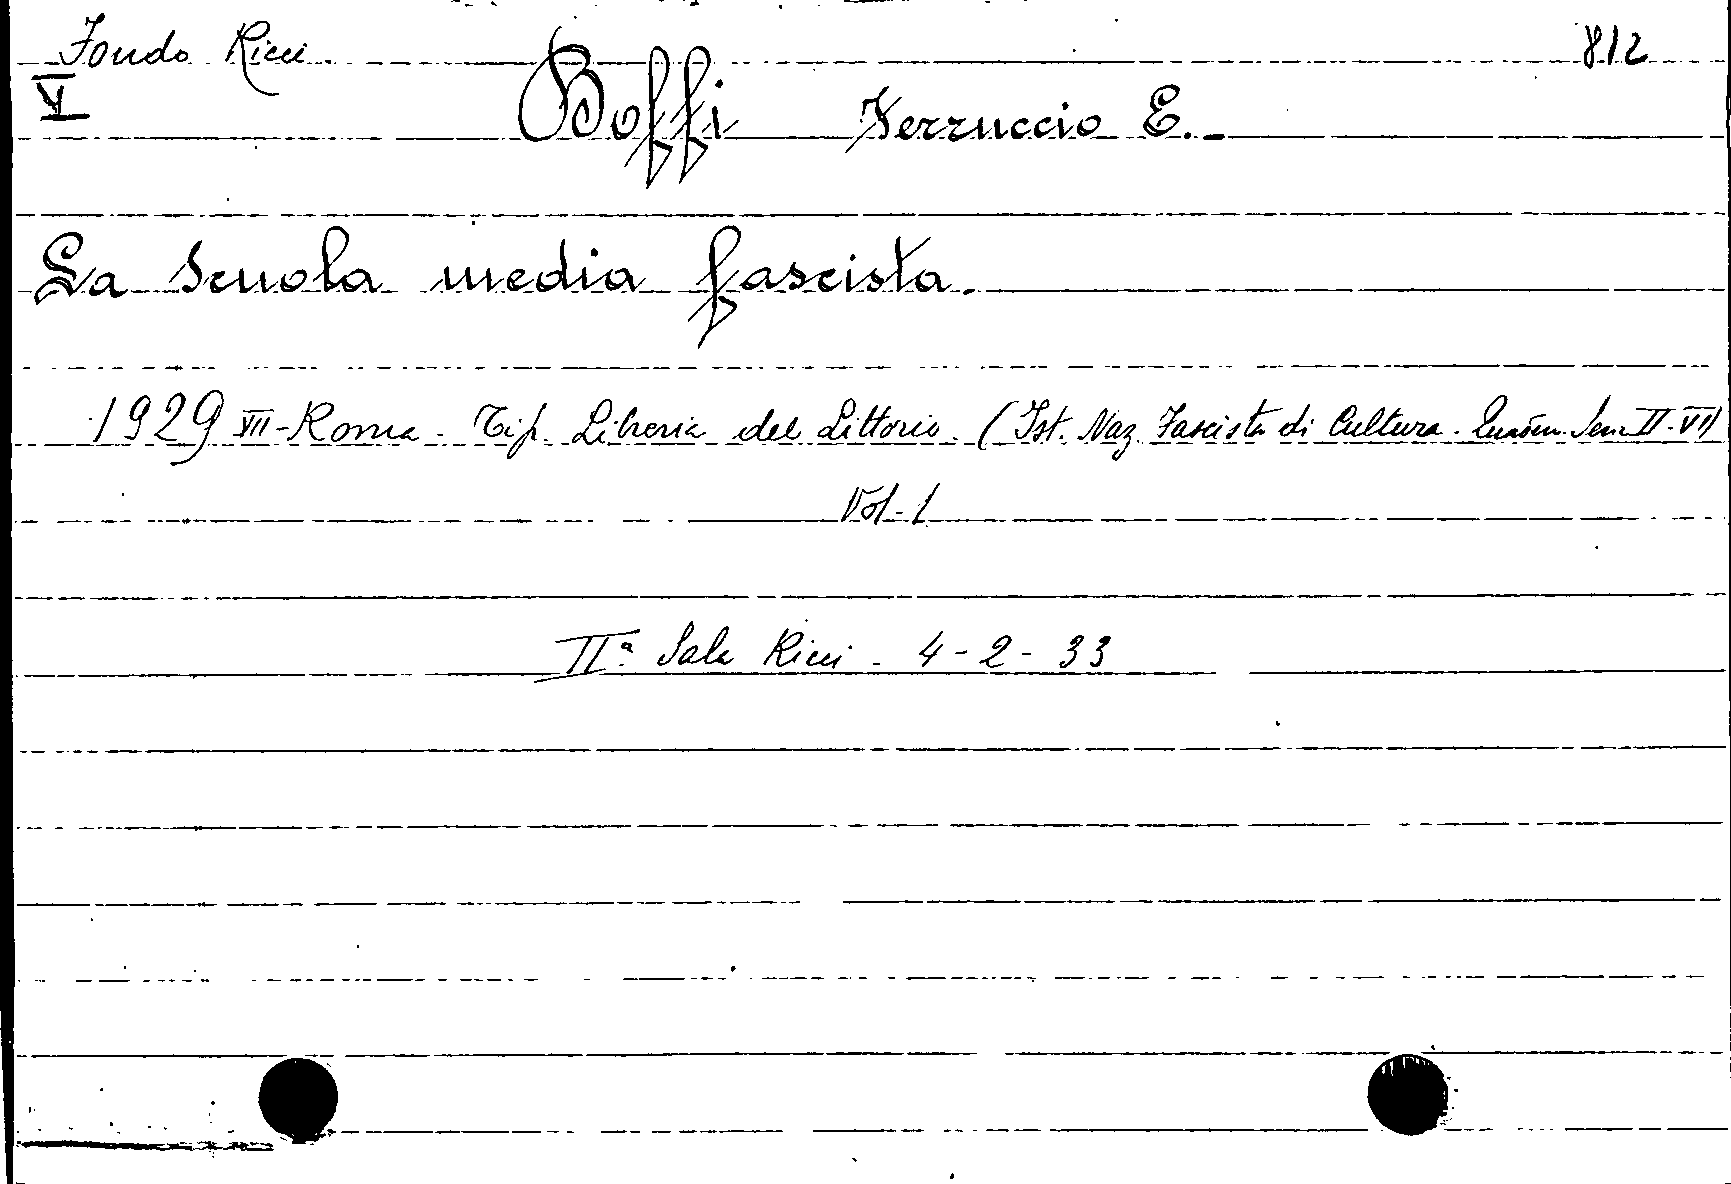 Fondo Ricci. 812
V Boffi Ferruccio E.-
La scuola media fascista.
1929 VII-Roma. Tip. Libreria del Littorio. (Ist. Naz. Fascista di Cultura. Quadern. Serie II-VI)
Vol. 1
IIª Sala Ricci - 4-2-33